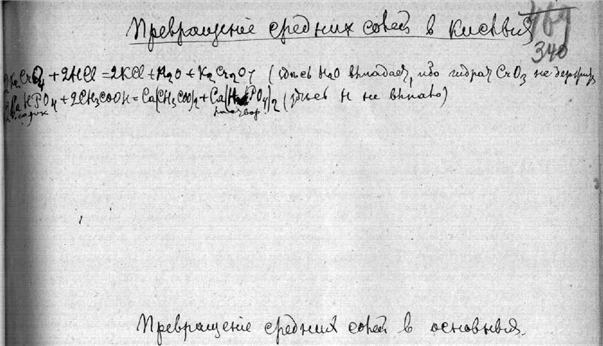 Превращение средних солей в кислыя
469
340
2K₂CrO₄ + 2HCl = 2KCl + H₂O + K₂Cr₂O₇ (здесь H₂O выпадает, ибо гидрат CrO₃ не
HPO₄ + 2CH₃COOH = Ca(CH₃COO)₂ + Ca(H₂PO₄)₂ (здесь H не выпало)
раствор
Превращение средних солей в основныя.